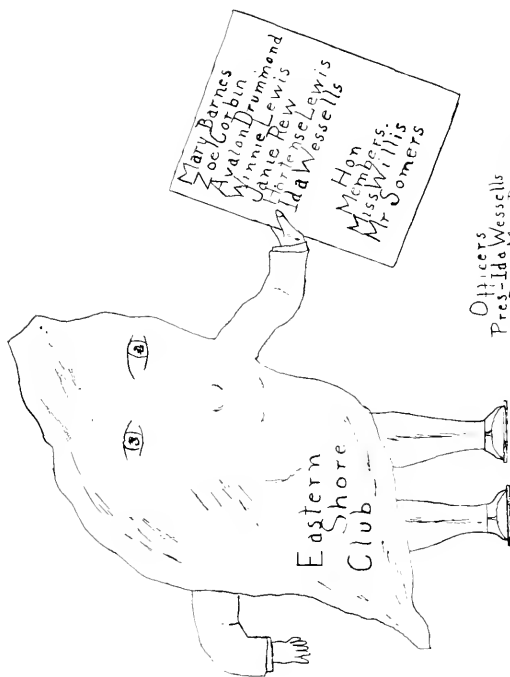 Eastern
Shore
Club
Mary Barnes
Zoe Corbin
Avalon Drummond
Winnie Lewis
Janie Rew
Hortense Lewis
Ida Wessells
Hon
Members:
Miss Willis
Mr Somers
Officers
Pres-Ida Wessells